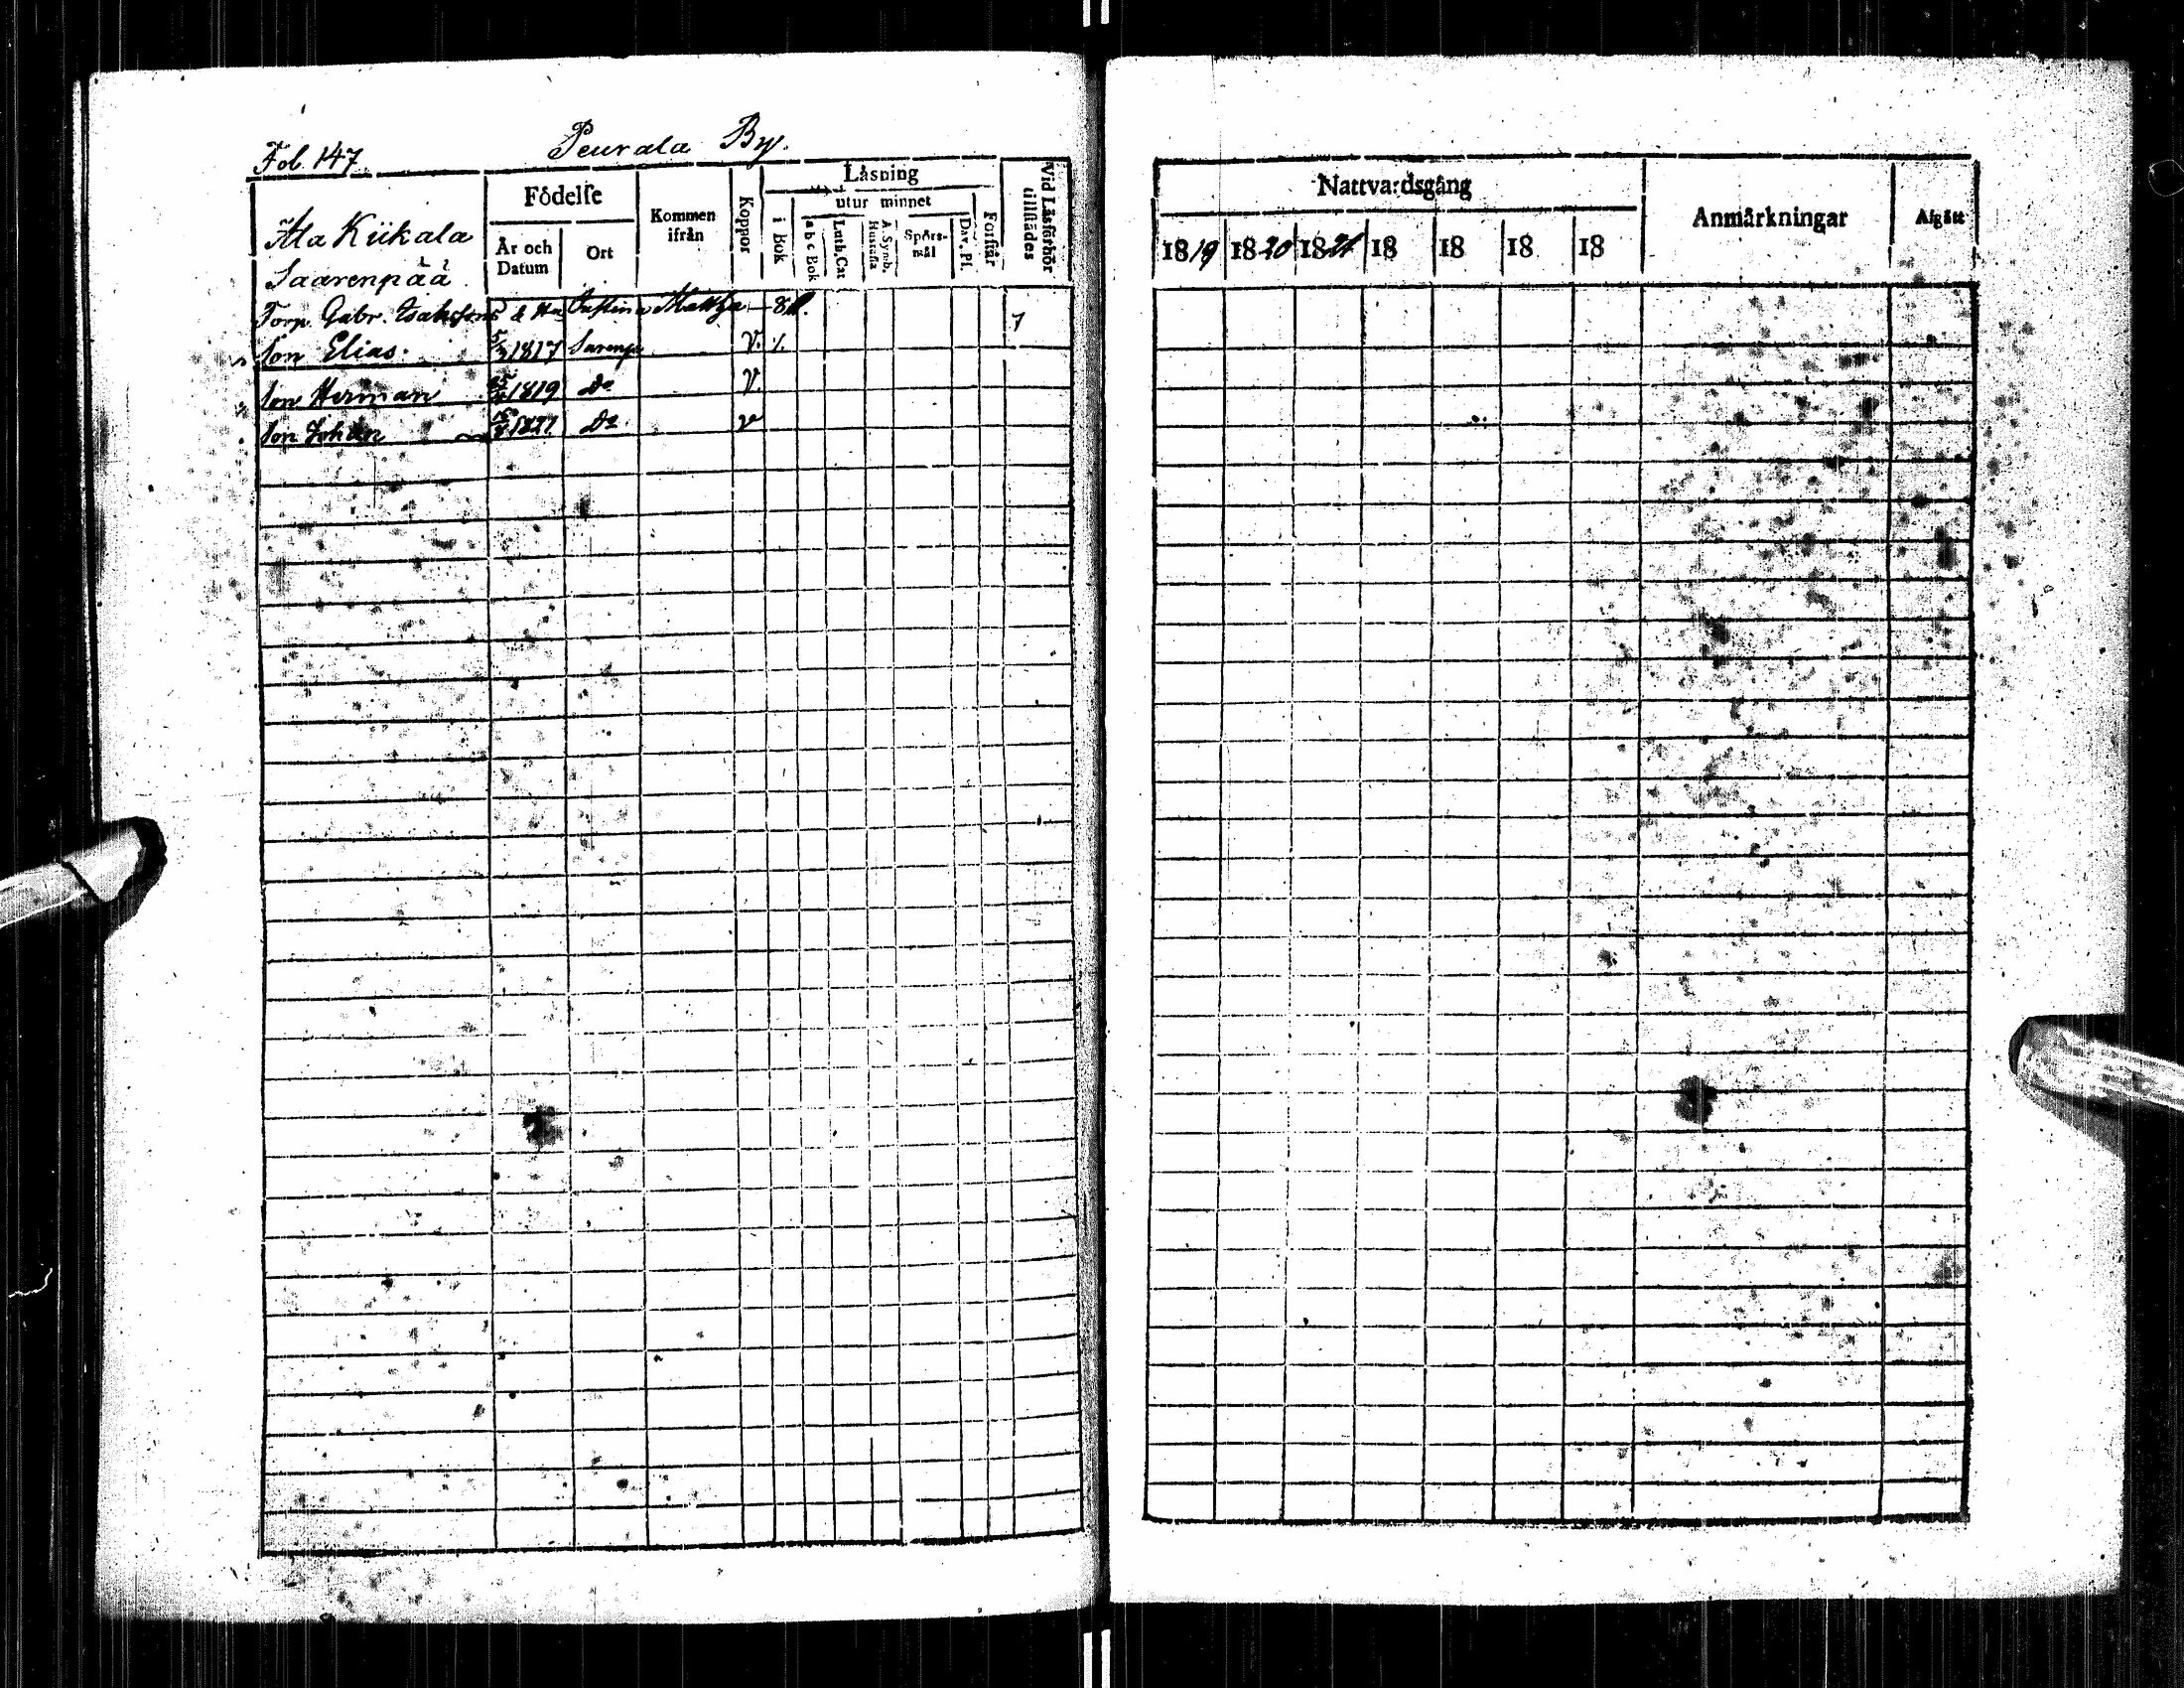 Fol. 147.
Peurala By.
Ala Kiikala
Saarenpää.
Födelse
År och Datum
Ort
Kommen ifrån
Koppor
Läsning
i Bok
utur minnet
a b c Bok
Luth. Cat
A. Symb. Hustafla
Spörsmål
Dav. Ps.
Förstår
Vid Läsförhör tillstädes
Torp. Gabr. Isaksson 7
Son Elias. 1817 V.
Son Herman 1819 Do V.
Son Johan 1821 Do v
Nattvardsgång
1819 1820 1821 18 18 18 18
Anmärkningar
Afgått